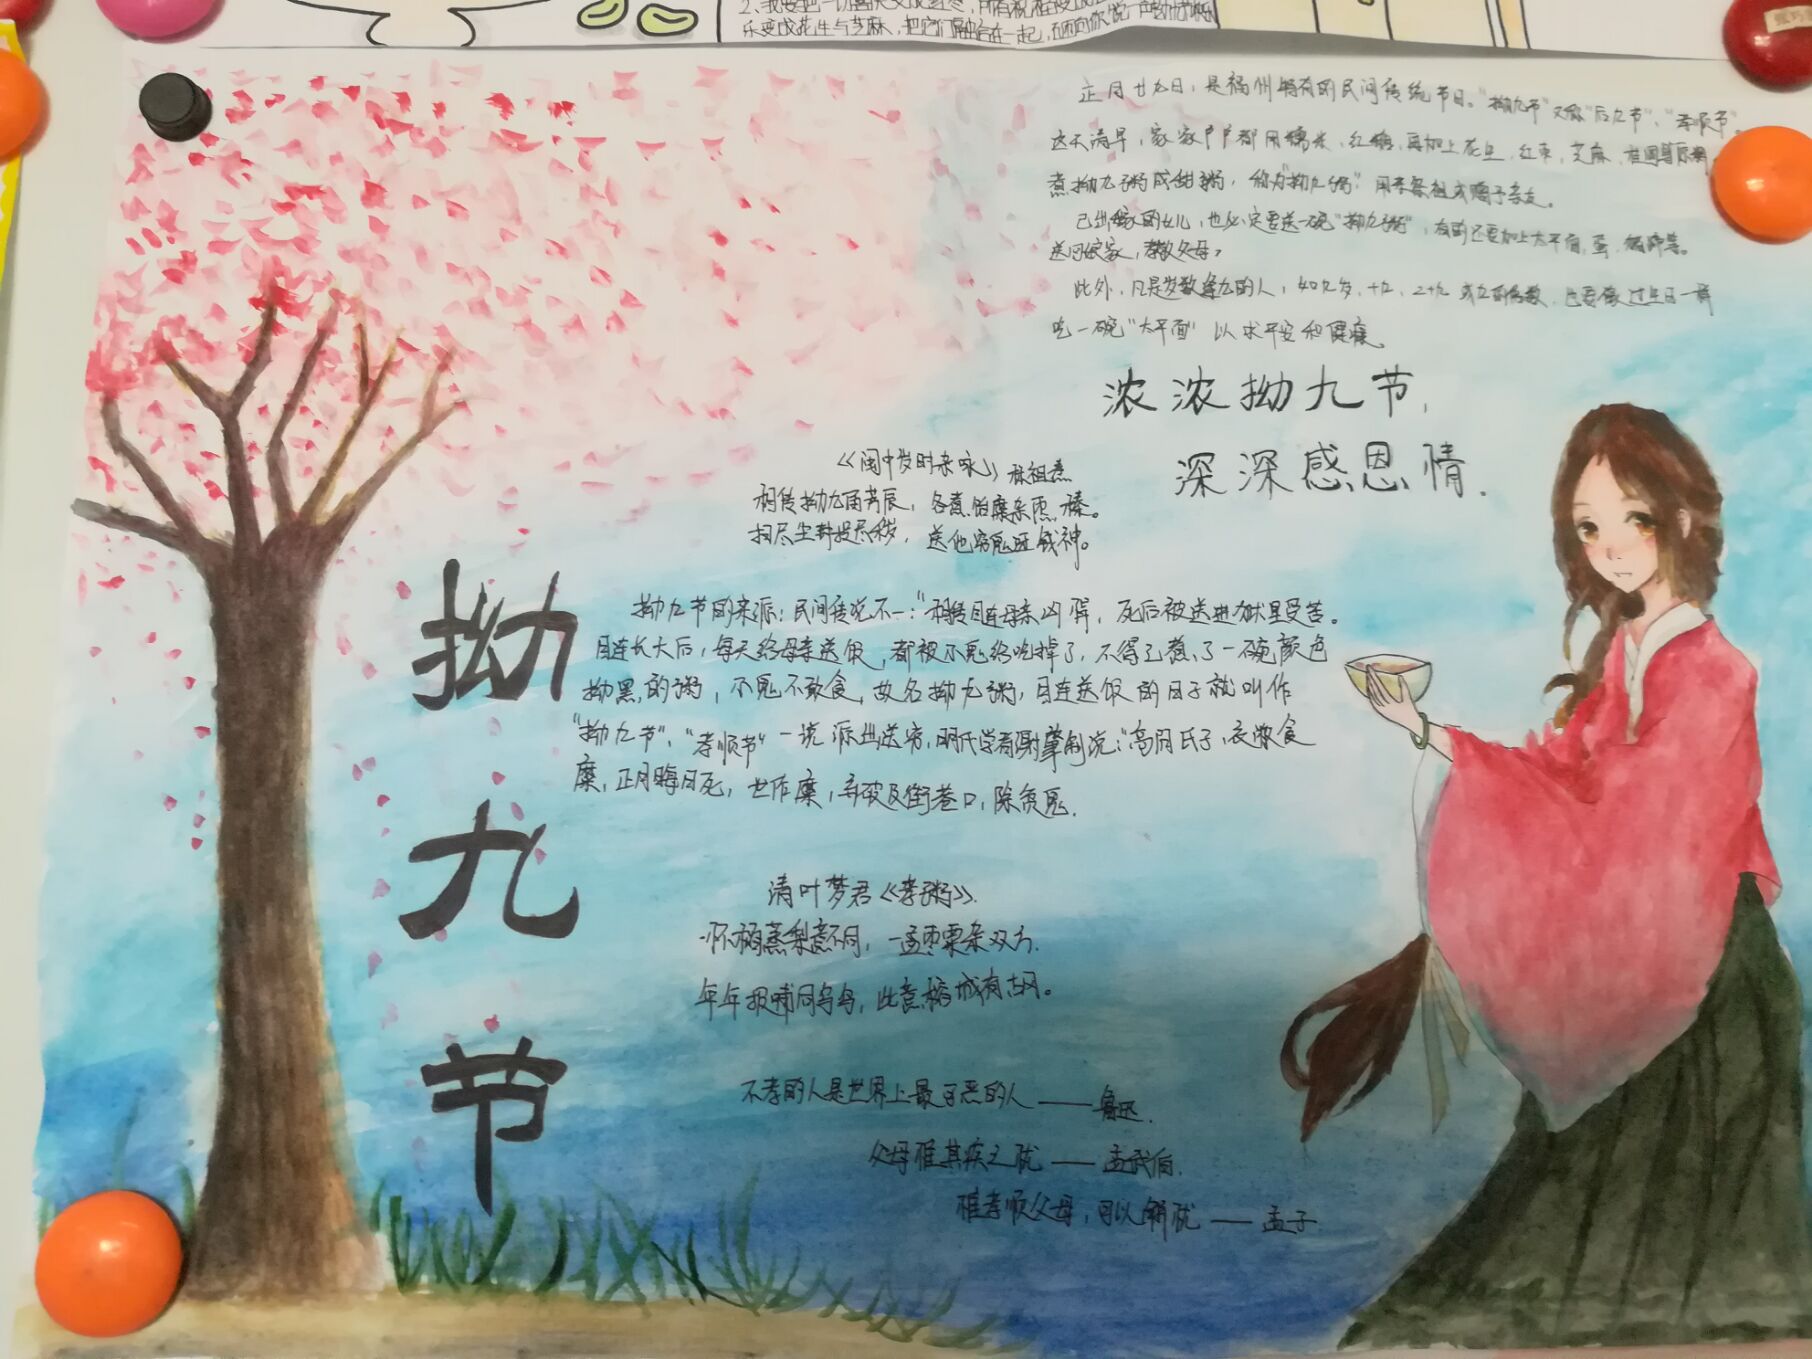 乐变成花生与芝麻，把它们融合在一起，
正月廿九日，是福州特有的民间传统节日。"拗九节"又称"后九节"、"孝顺节"。
这天清早，家家户户都用糯米，红糖，再加上花生，红枣，芝麻，桂圆等原料，
煮拗九粥成甜粥，称为"拗九粥"用来祭祖或赠予亲友。
已出嫁的女儿，也必定要送一碗"拗九粥"，有的还要加上太平面，蛋，猪蹄等。
送回娘家，孝敬父母，
此外，凡是岁数逢九的人，
吃一碗"太平面"以求平安和健康。
浓浓拗九节，
深深感恩情.
《闽中岁时杂咏》
相传拗九届芳辰，各煮饴糜杂
扫尽尘 送他穷鬼迎钱神。
拗九节
拗九节的来源：民间传说不一："相传目连母亲凶悍，死后被送进狱里受苦。
目连长大后，每天给母亲送饭，都被小鬼给吃掉了，不得已煮了一碗颜色
拗黑的粥，小鬼不敢食，故名拗九粥，目连送饭的日子就叫作
"拗九节"、"孝顺节"一说源出送穷，明代学者谢肇制说："高阳氏子，衣敝食
糜，正月晦日死，世作糜，弃破衣街巷口，除贫鬼.
清叶梦君《孝粥》.
怀橘蒸梨意不同，一盂枣栗杂双弓.
年年报哺同乌鸟，此意榕城有古风。
不孝的人是世界上最可恶的人——鲁迅.
父母惟其疾之忧——孟武伯.
惟孝顺父母，可以解忧——孟子